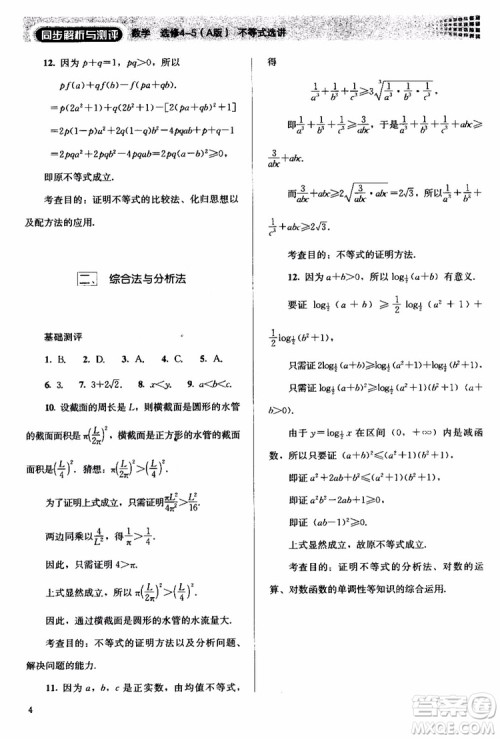 同步解析与测评 数学 选修4-5(A版) 不等式选讲
12. 因为 p+q=1,所以
pf(a)+qf(b)-f(pa+qb)
=p(2a²+1)+q(2b²+1)-[2(pa+qb)²+1]
=2p(1-p)a²+2q(1-q)b²-4pqab+p+q-1
=2pqa²+2pqb²-4pqab
=2pq(a-b)²≥0,
即原不等式成立.
考查目的:证明不等式的比较法、化归思想以
及配方法的应用.
二、 综合法与分析法
基础测评
1. B. 2. D. 3. A. 4. C. 5. C.
6. 3. 7. 3+2√2. 8. x<y.
10. 设截面的周长是 L,则横截面是圆形的水管
的截面面积是 π(L/2π)²,横截面是正方形的水管的截面
面积是(L/4)². 猜想:π(L/2π)²>(L/4)².
为了证明上式成立,只需证明 πL²/4π²>L²/16.
两边同乘 4/L²,得 1/π>1/4.
因此,只需证明 4>π.
因为上式成立,所以 π(L/2π)²>(L/4)².
因此,横截面是圆形的水管的水流量大.
考查目的:不等式的证明方法以及分析问题、
解决问题的能力.
11. 因为 a,b,c 是正实数,由均值不等式,
得
1/a³+1/b³+1/c³≥3∛(1/a³·1/b³·1/c³),
即 1/a³+1/b³+1/c³≥3/abc,于是 1/a³+1/b³+1/c³+abc
≥3/abc+abc.
而 3/abc+abc≥2√(3/abc·abc)=2√3,所以 1/a³+1/b³
+1/c³+abc≥2√3.
考查目的:不等式的证明方法.
12. 因为 a+b>0,所以 log½(a+b)有意义.
要证 log½(a+b)≥½log½(a²+1)+
½log½(b²+1)成立,
只需证 2log½(a+b)≥log½(a²+1)(b²+1)(a+
b>0).
由于 y=log½x 在区间(0,+∞)内是减
函数,所以只要证(a+b)²≤(a²+1)(b²+1),
即证 a²+2ab+b²≤(a²+1)(b²+1),
即证(ab-1)²≥0.
上式显然成立,故原不等式成立.
考查目的:证明不等式的分析法、对数的运
算、对数函数的单调性等知识的综合运用.
4